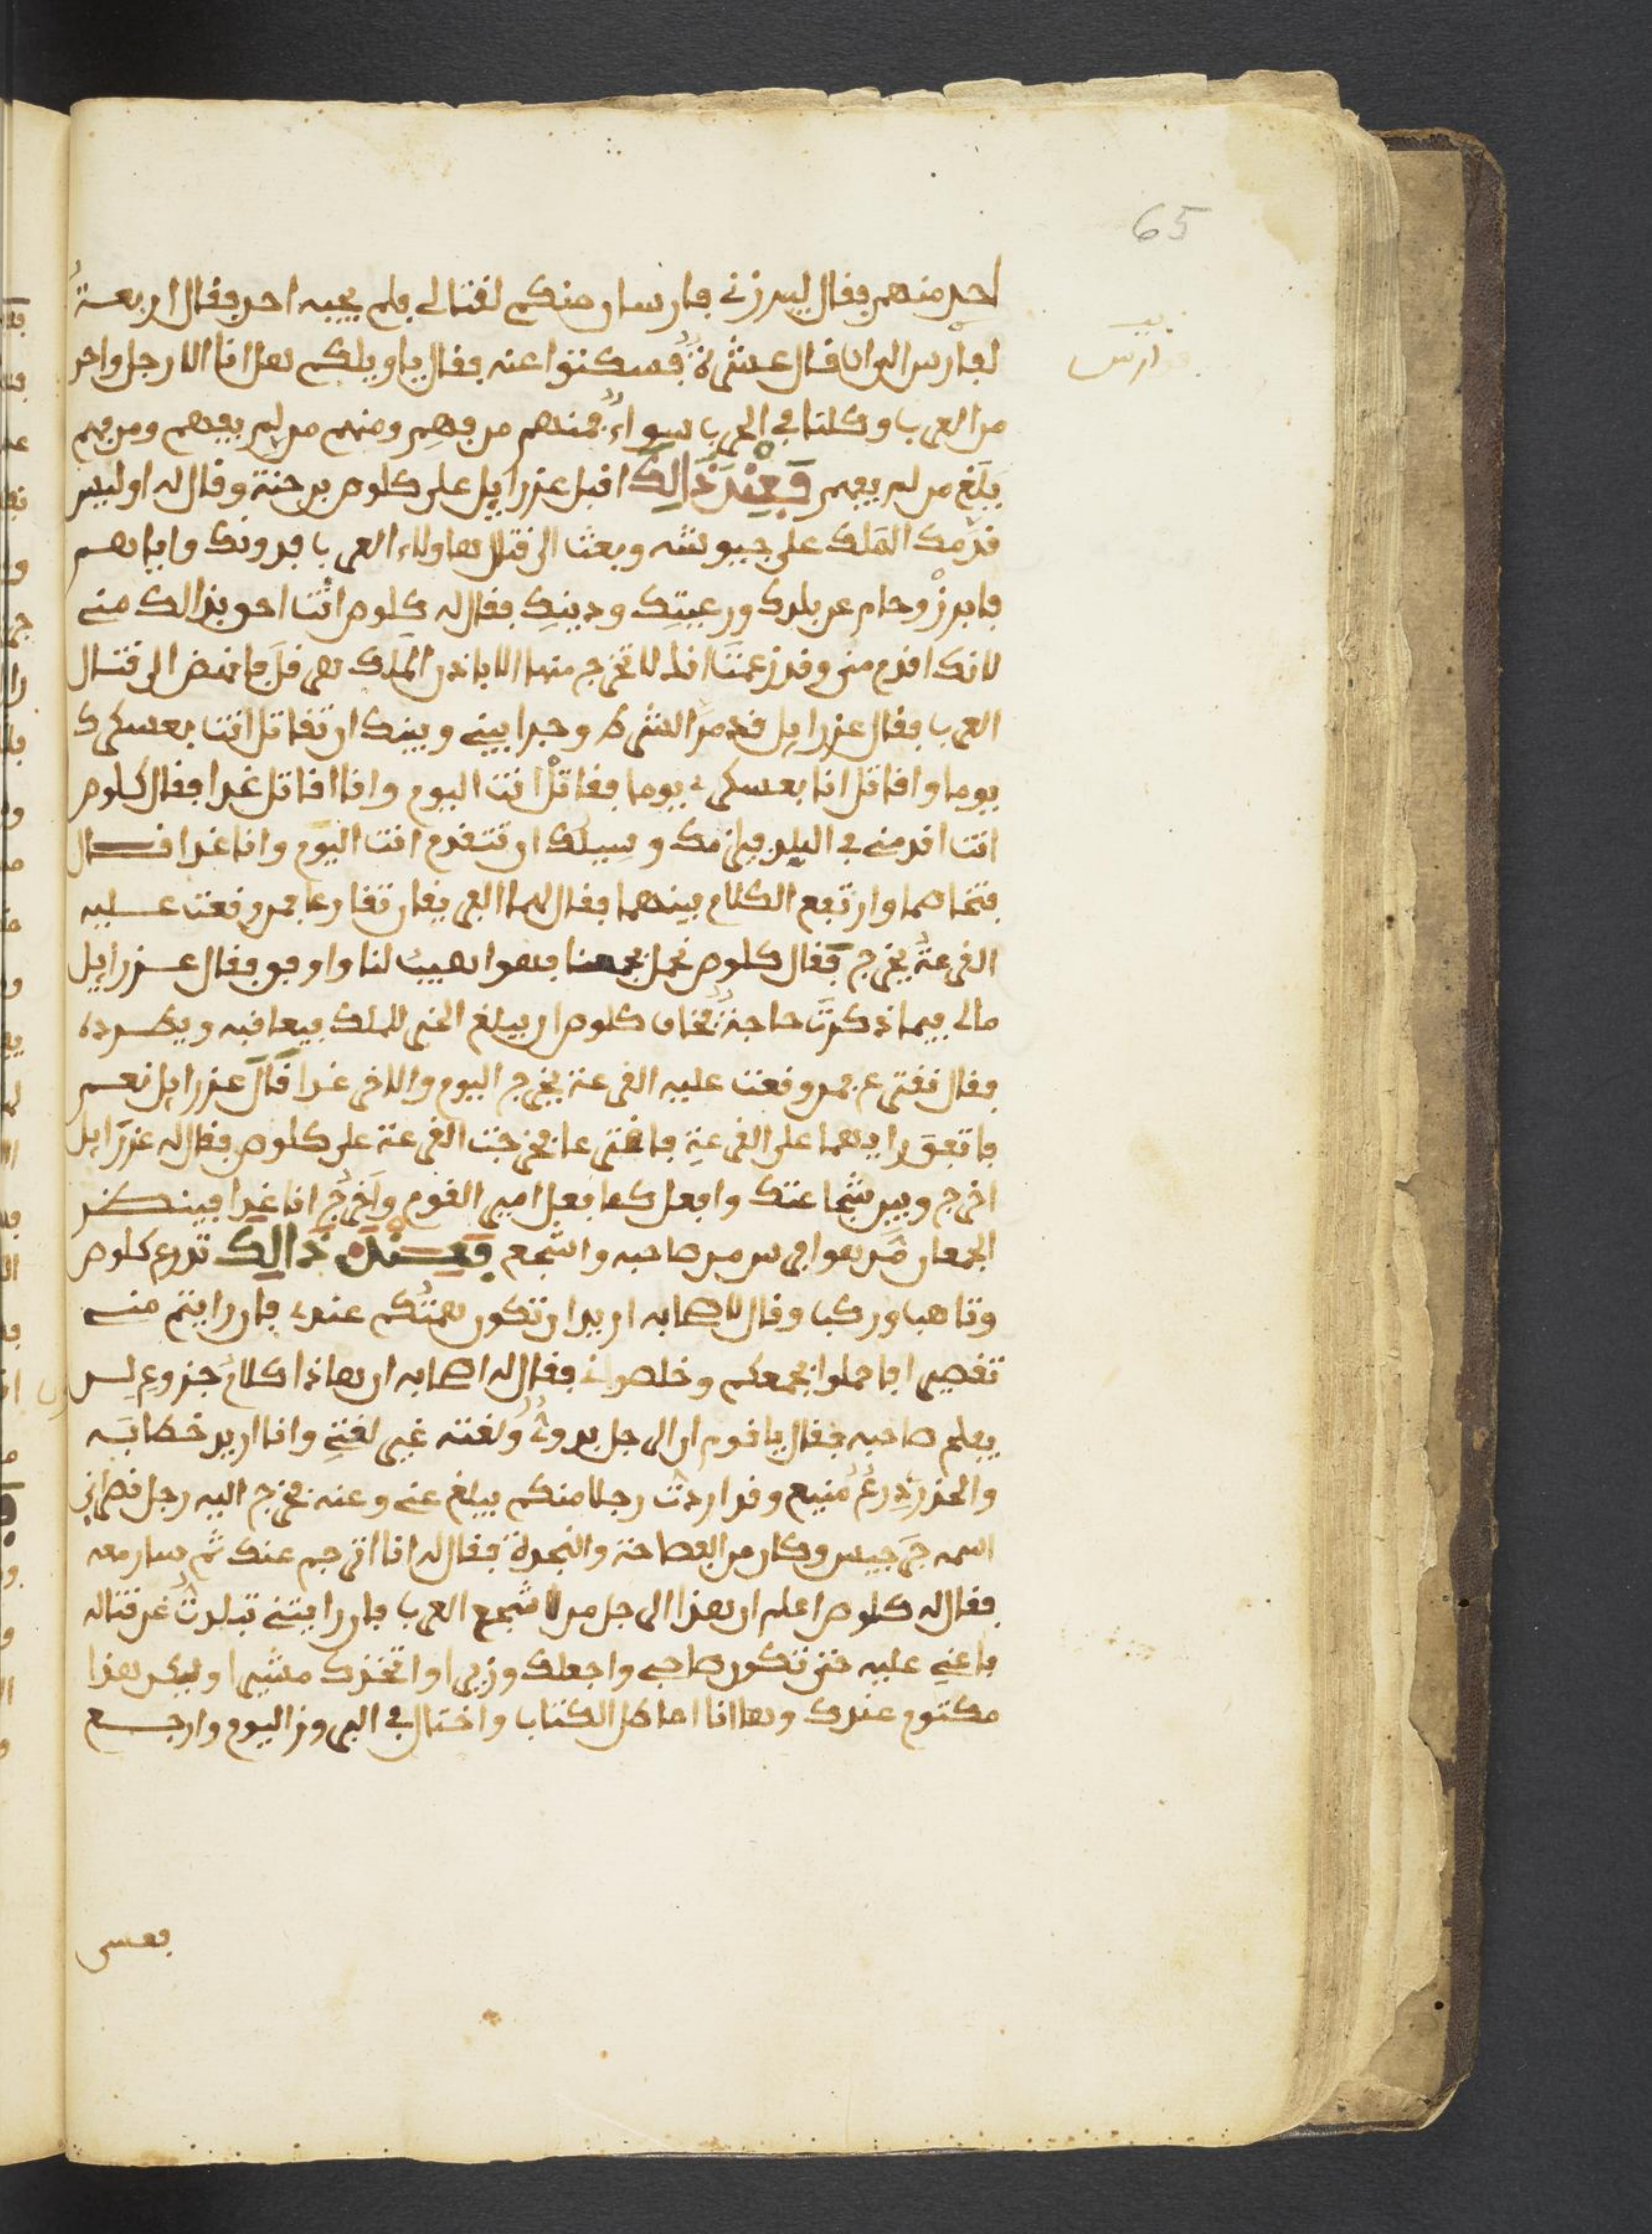 65
احد منهم فقال ليبرزني فارسان منكم لقتالي فلم يجيبه احد فقال اربعة
فوارس
لفارس الى ان قال عشرة فسكتوا عنه فقال يا ويلكم هل انا الا رجل واحد
من العرب وكلنا في الحرب سواء فمنهم من فهم ومنهم من لم يفهم ومن فهم
يبلغ من لم يفهم فعند ذالك اقبل عزرايل على كلوص بن حنة وقال له اوليس
قدمك الملك على جيوشه وبعث الى قتال هاولاء العرب فدونك واياهم
فابرز وحام عن بلدك ورعيتك ودينك فقال له كلوص انت احق بذالك مني
لانك اقدم مني وقد زعمت انك لا تخرج منها الا باذن الملك هرقل فانهض الى قتال
العرب فقال عزرايل قدم الشرط وجدا بيني وبينك ان تقاتل انت بعسكرك
يوما واقاتل انا بعسكري يوما فقاتل انت اليوم وانا اقاتل غدا فقال كلوص
انت اقدم مني في البلد وسبيلك ان تتقدم انت اليوم وانا غدا قال
فتخاصما وارتفع الكلام بينهما فقال لهما البعض تقارعا فمن وقعت عليه
القرعة يخرج فقال كلوص نحمل بجمعنا فهوا هيب لنا واوفق فقال عزرايل
مالي فيما ذكرت حاجة فخاف كلوص ان يبلغ الخبر للملك فيعاقبه ويطرده
فقال نقترع فمن وقعت عليه القرعة يخرج اليوم والاخر غدا قال عزرايل نعم
فاتفق رايهما على القرعة فاقترعا فخرجت القرعة على كلوص فقال له عزرايل
اخرج وبين شجاعتك وافعل كما فعل امير القوم واخرج انا غدا فينظر
الجمعان من هوا فرس من صاحبه واشجع فعند ذالك تدرع كلوص
وتاهب وركب وقال لاصحابه اريد ان تكون همتكم عندي فان رايتم مني
تقصيرا فاحملوا بجمعكم وخلصوني فقال له اصحابه ان هاذا كلام جزوع ليس
يفلح صاحبه فقال يا قوم ان الرجل بدوي ولغته غير لغتي وانا اريد خطابه
والحذر درع منيع وقد اردت رجلا منكم يبلغ عني وعنه فخرج اليه رجل نصراني
اسمه جرجيس وكان من الفصاحة والنجدة فقال له انا اترجم عنك ثم سار معه
فقال له كلوص اعلم ان هذا الرجل من اشجع العرب فان رايتني تبلدت عن قتاله
فاعني عليه حتى تكون صاحبي واجعلك وزيرا واتخذك مشيرا وليكن هذا
مكتوم عندك وها انا اماطل الكتاب واحتال في البروز اليوم وارجع
فعسى